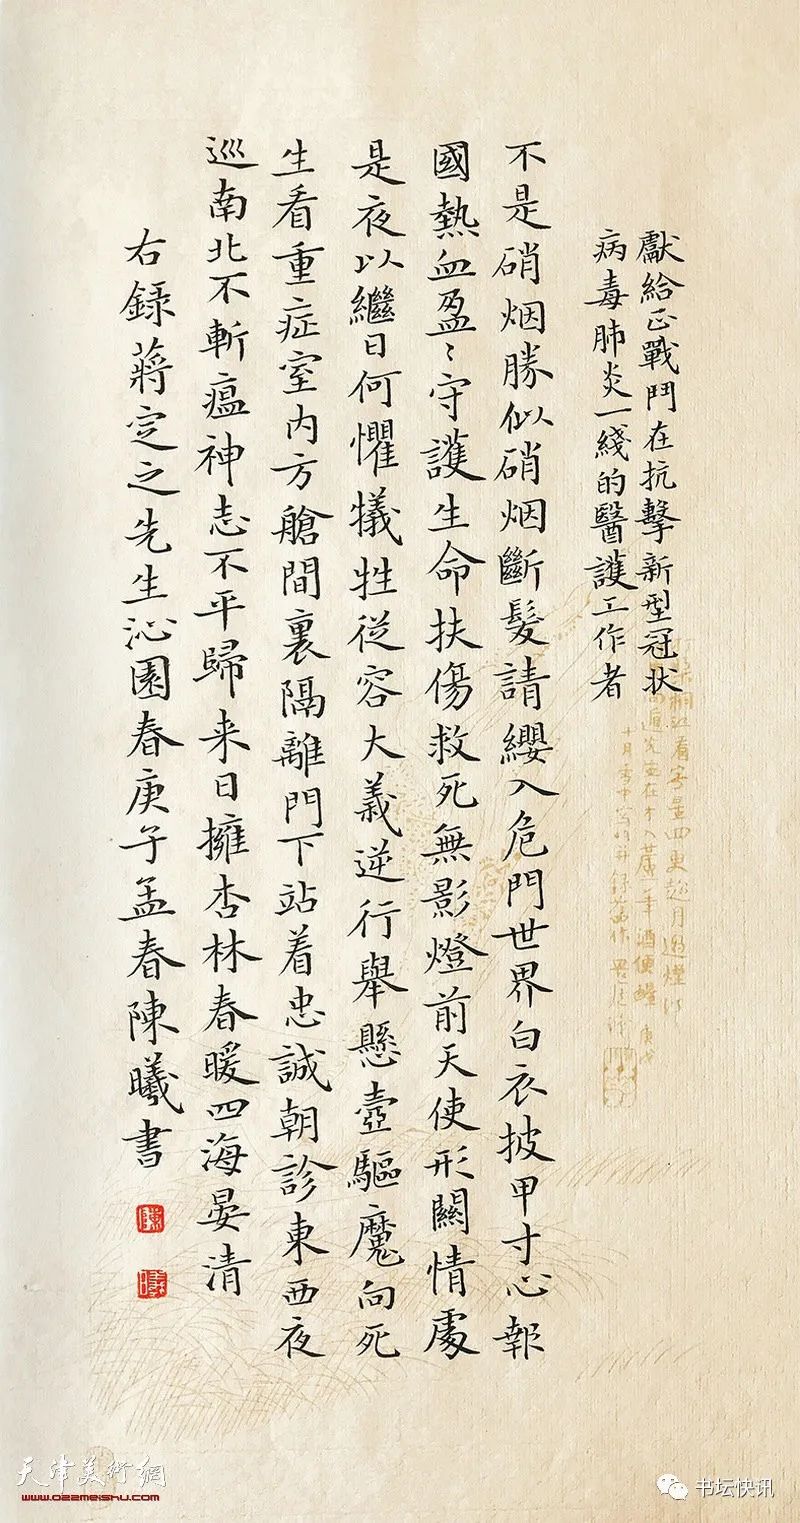 獻給正戰鬥在抗擊新型冠状
病毒肺炎一綫的醫護工作者
不是硝烟勝似硝烟斷髮請纓入危門世界白衣披甲寸心報
國熱血盈〻守護生命扶傷救死無影燈前天使形關情處
是夜以繼日何懼犧牲從容大義逆行舉懸壺驅魔向死
生看重症室内方艙間裏隔離門下站着忠誠朝診東西夜
巡南北不斬瘟神志不平歸来日擁杏林春暖四海晏清
右録蔣定之先生沁園春庚子孟春陳曦書
陳
曦
天津美術網
www.022meishu.com
书坛快讯